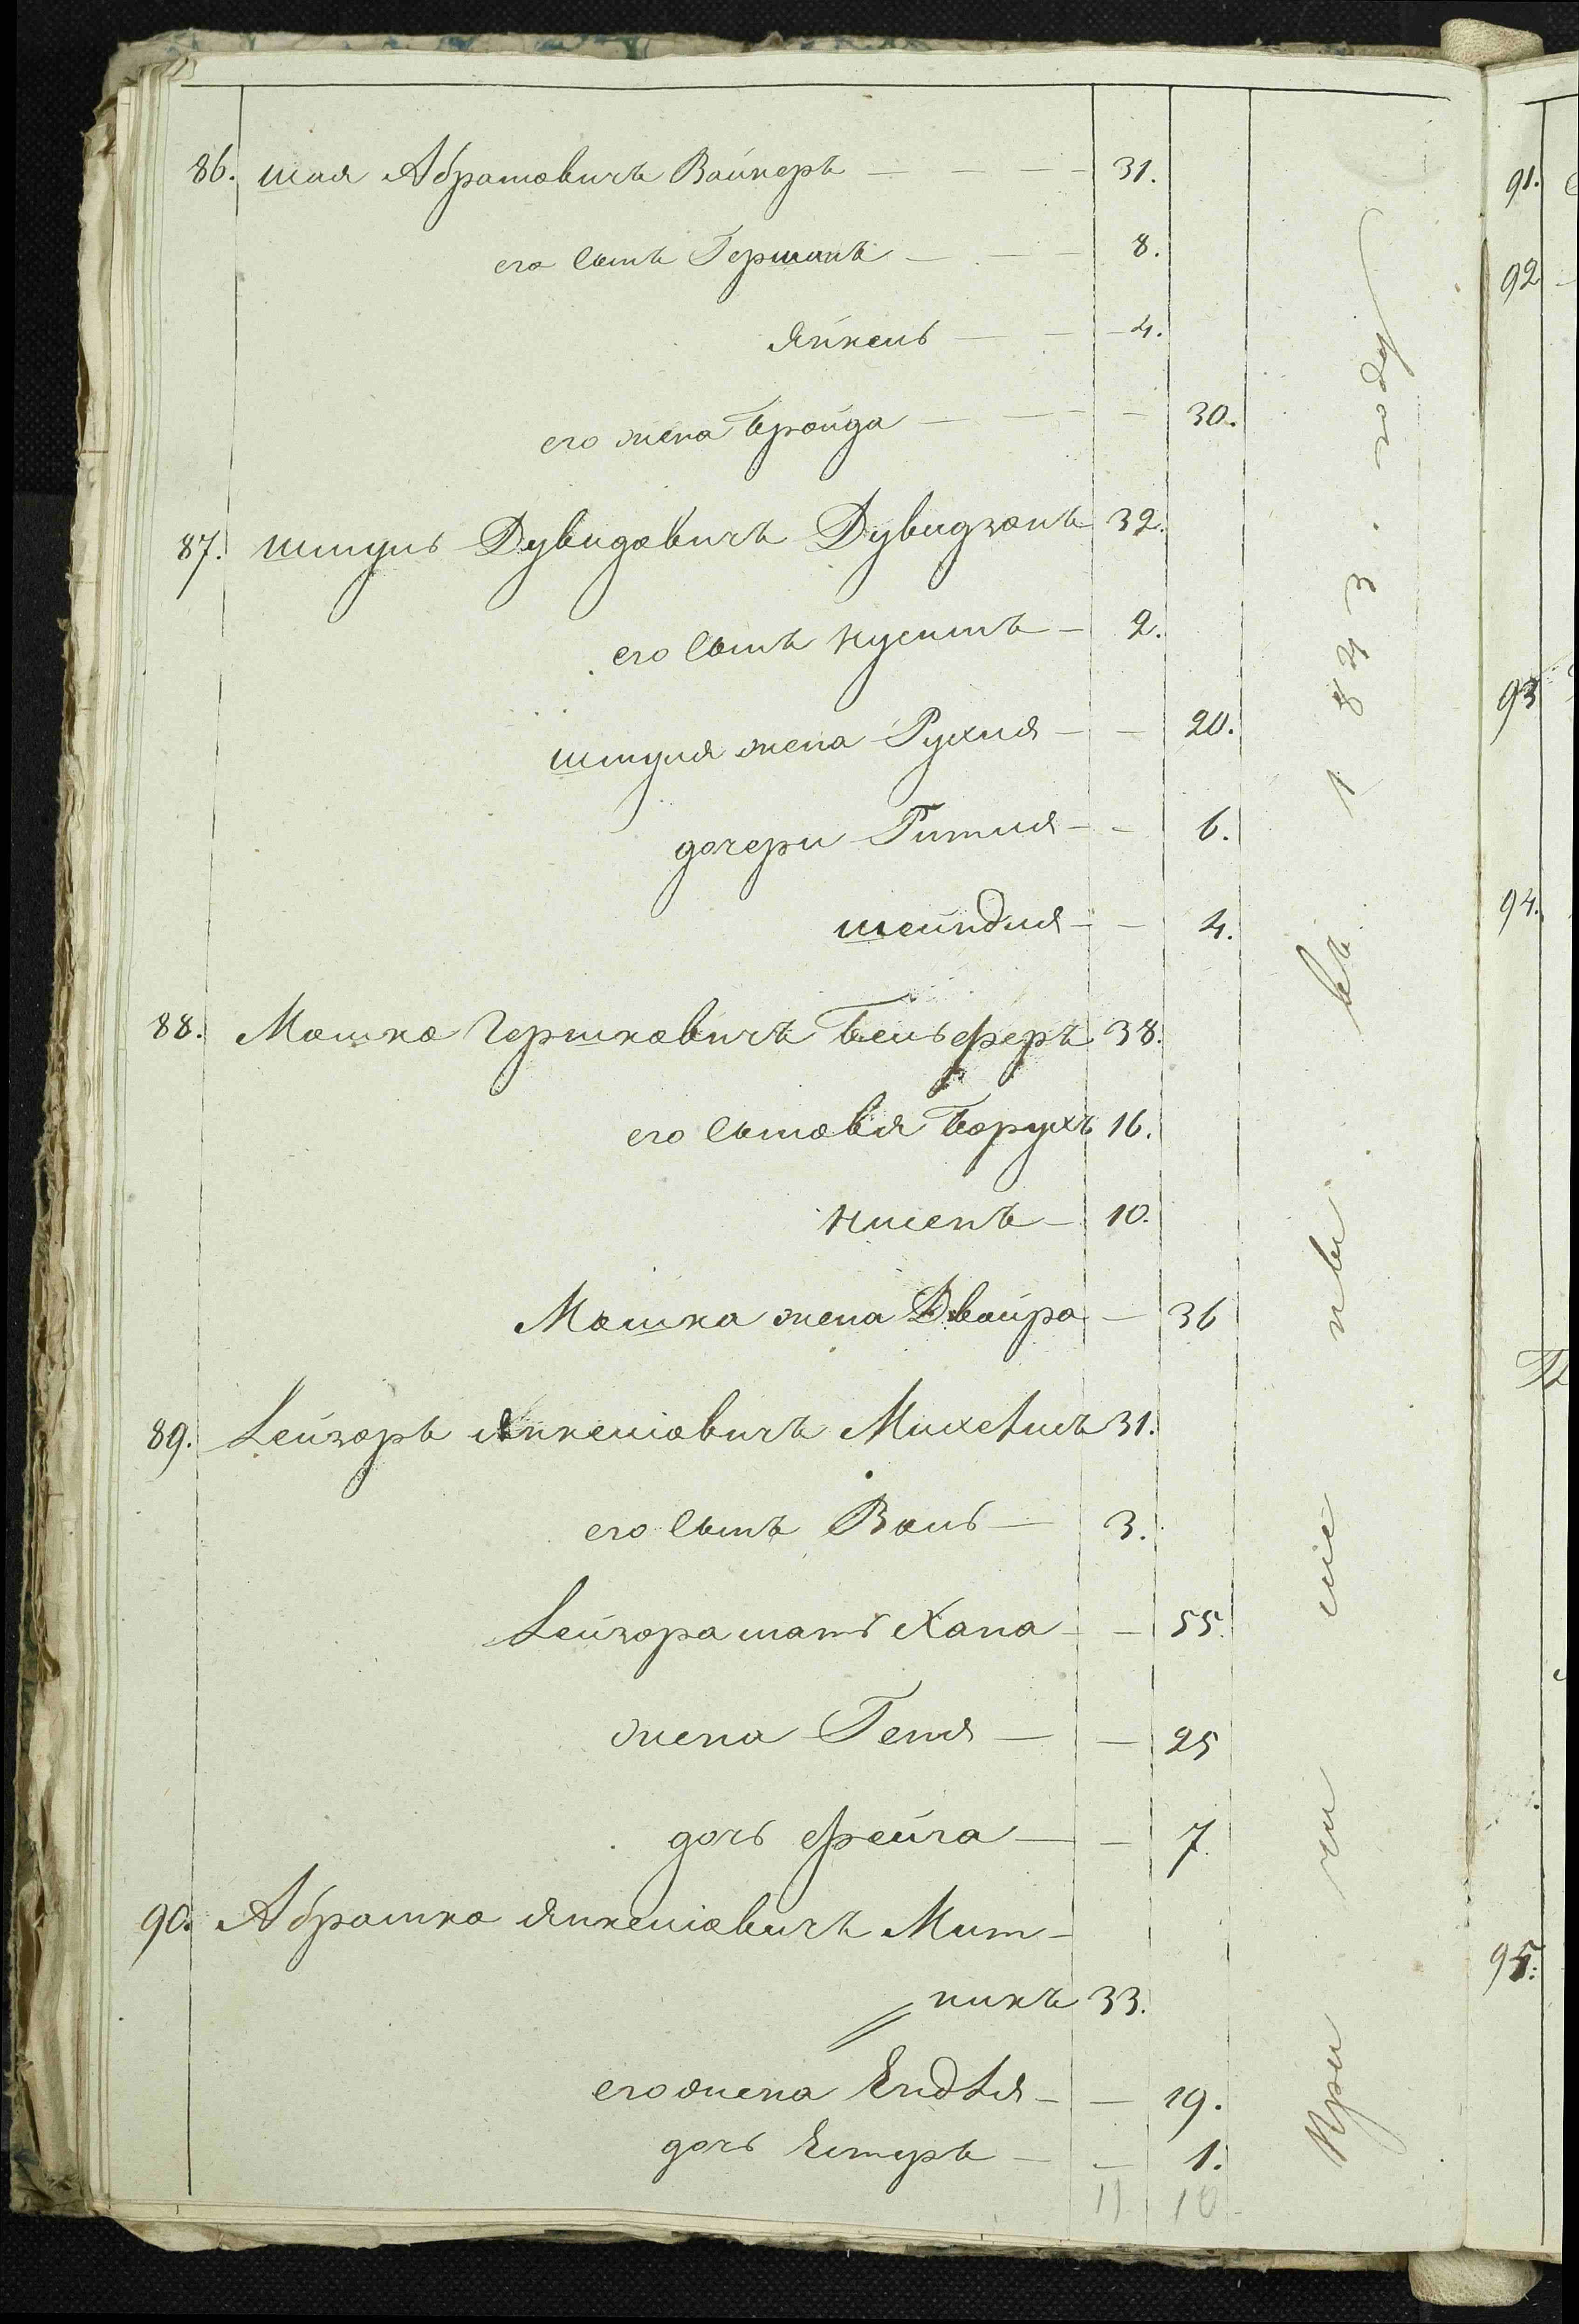 86. Шая Абрамовичъ Вайнеръ — — — 31.
его сынъ Гершанъ — — — 8.
Янкель — — 4.
его жена Бройда — — — 30.
87. Шмуль Дувидовичъ Дувидзонъ 32.
его сынъ Нусимъ — 2.
Шмуля жена Рухля — — 20.
дочери Ритля — — 6.
Шейндля — — 4.
88. Мошко Гершковичъ Бельферъ 38.
его сыновья Борухъ 16.
Нисенъ — 10.
Мошка жена Двойра — 36
89. Лейзоръ Янкеліовичъ Михелисъ 31.
его сынъ Воль — 3.
Лейзора мать Хана — — 55.
жена Геня — — 25
дочь Фейга — — 7.
90. Абрашко Янкеліовичъ Мит-
никъ 33.
его жена Ендля — — 19.
дочь Естеръ — — 1.
11 10
Причисленны въ 1843. году
91.
92
93
94.
95.